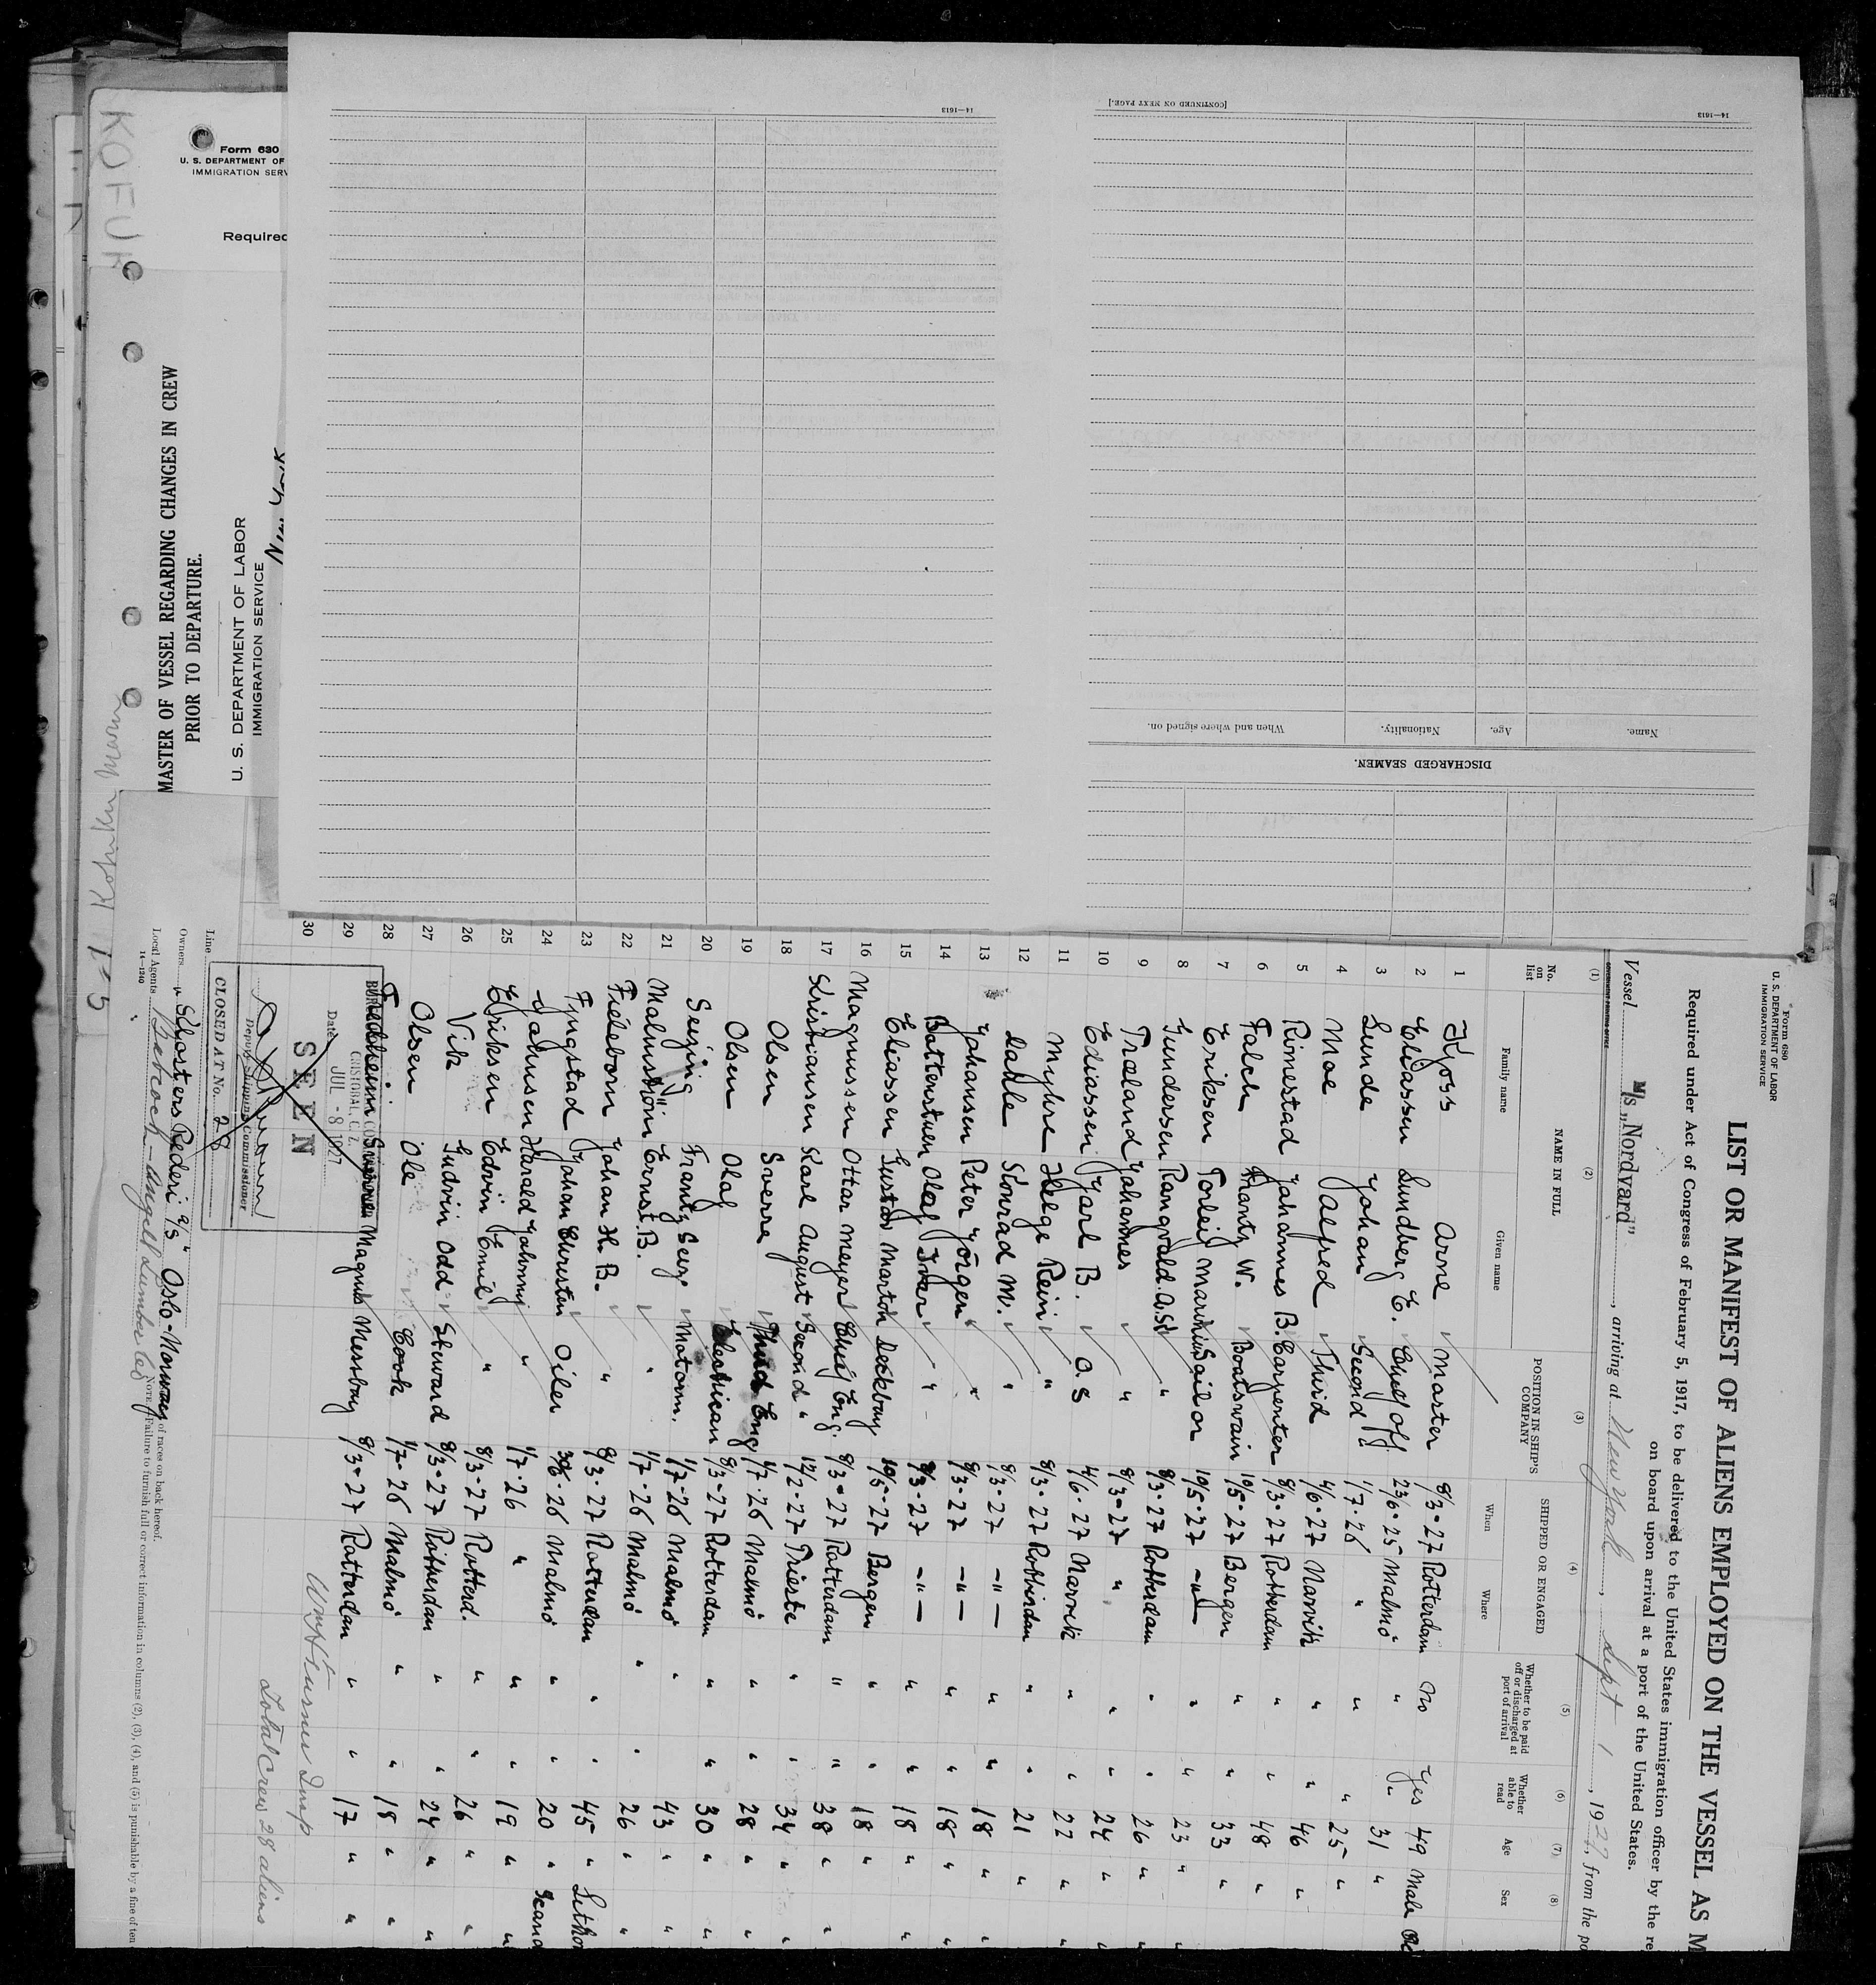 Form 680
U. S. DEPARTMENT OF LABOR
IMMIGRATION SERVICE
LIST OR MANIFEST OF ALIENS EMPLOYED ON THE VESSEL AS M
Required under Act of Congress of February 5, 1917, to be delivered to the United States immigration officer by the re
on board upon arrival at a port of the United States.
Vessel M/S „Nordvard" , arriving at New York , Sept 1 , 1927, from the po
(1) (2) (3) (4) (5) (6) (7) (8)
No. on list NAME IN FULL POSITION IN SHIP'S COMPANY SHIPPED OR ENGAGED Whether to be paid off or discharged at port of arrival Whether able to read Age Sex
Family name Given name When Where
1 Kjoss Arne Master 8/3-27 Rotterdam No Yes 49 Male
2 Eliassen Lundberg E. Chief off 23/6-25 Malmö " " 31 "
3 Lunde Johan Second " 1/7-26 " " " 25 "
4 Moe Alfred Third 4/6-27 Narvik " " 46 "
5 Rimestad Johannes B. Carpenter 8/3-27 Rotterdam " " 48 "
6 Falch Frantz W. Boatswain 10/5-27 Bergen " " 33 "
7 Eriksen Torleif Martin Sailor 10/5-27 -"- " " 23 "
8 Gundersen Rangvald. A. " 8/3-27 Rotterdam " " 26 "
9 Træland Johannes " 8/3-27 " " " 24 "
10 Ediassen Jarl B. O.S 4/6-27 Narvik " " 22 "
11 Myhre Helge Rein " 8/3-27 Rotterdam " " 21 "
12 Dahle Konrad M. " 8/3-27 -"- " " 18 "
13 Johansen Peter Jörgen " 8/3-27 -"- " " 18 "
14 Battenstuen Olaf Iver " 8/3-27 -"- " " 18 "
15 Eliassen Gustav Martin Deckboy 10/5-27 Bergen " " 18 "
16 Magnussen Ottar Meyer Chief Eng. 8/3-27 Rotterdam " " 38 "
17 Kristiansen Karl August Second " 12/2-27 Trieste " " 34 "
18 Olsen Sverre Third Eng 1/7-26 Malmö " " 28 "
19 Olsen Olaf Electrician 8/3-27 Rotterdam " " 30 "
20 Seizing Frantz Motorm. 1/7-26 Malmö " " 43 "
21 Malmström Ernst. B. " 1/7-26 Malmö " " 26 "
22 Fieleborn Johan H. B. " 8/3-27 Rotterdam " " 45 "
23 Fyngstad Johan Christen Oiler 30/6-26 Malmö " " 20 " Scand
24 Johnsen Harald Johnny " 1/7-26 " " " 19 "
25 Eriksen Edvin Emil " 8/3-27 Rotterd. " " 26 "
26 Vik Gudvin Odd Steward 8/3-27 Rotterdam " " 24 "
27 Olsen Ole Cook 1/7-26 Malmö " " 18 "
28 Magnus Messboy 8/3-27 Rotterdam " " 17 "
29
30
CRISTOBAL, C. Z.
Date JUL -8 1927
SEEN
Deputy Shipping Commissioner
CLOSED AT No. 28
Total Crew 28 aliens
Line
Owners „Skjosters Rederi A/S" Oslo-Norway
Local Agents Babcock-Angell Lumber Co
14—1240
of races on back hereof.
NOTE.—Failure to furnish full or correct information in columns (2), (3), (4), and (5) is punishable by a fine of ten
Form 630
U. S. DEPARTMENT OF
IMMIGRATION SERV
Required
MASTER OF VESSEL REGARDING CHANGES IN CREW
PRIOR TO DEPARTURE.
U. S. DEPARTMENT OF LABOR
IMMIGRATION SERVICE
New York
KOFUK
Kohuku Maru
DISCHARGED SEAMEN.
Name. Age. Nationality. When and where signed on.
14—1613
[CONTINUED ON NEXT PAGE.]
14—1613